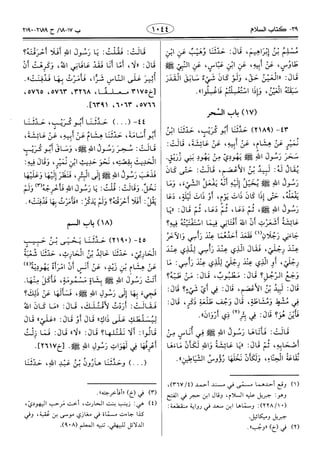 ٢٩- كتاب السلام
١٠٤٤
ب ١٧-١٨/ ح ٢١٨٩-٢١٩٠
مُسْلِمُ بْنُ إِبْرَاهِيمَ، قَالَ: حَدَّثَنَا وُهَيْبٌ عَنِ ابْنِ
طَاوُسٍ، عَنْ أَبِيهِ، عَنِ ابْنِ عَبَّاسٍ، عَنِ النَّبِيِّ ﷺ
قَالَ: «الْعَيْنُ حَقٌّ، وَلَوْ كَانَ شَيْءٌ سَابَقَ الْقَدَرَ
سَبَقَتْهُ الْعَيْنُ، وَإِذَا اسْتُغْسِلْتُمْ فَاغْسِلُوا».
باب (١٧) السحر
٤٣- (٢١٨٩) حَدَّثَنَا أَبُو كُرَيْبٍ، حَدَّثَنَا ابْنُ
نُمَيْرٍ عَنْ هِشَامٍ، عَنْ أَبِيهِ، عَنْ عَائِشَةَ، قَالَتْ:
سَحَرَ رَسُولَ اللهِ ﷺ يَهُودِيٌّ مِنْ يَهُودِ بَنِي زُرَيْقٍ،
يُقَالُ لَهُ: لَبِيدُ بْنُ الْأَعْصَمِ، قَالَتْ: حَتَّى كَانَ
رَسُولُ اللهِ ﷺ يُخَيَّلُ إِلَيْهِ أَنَّهُ يَفْعَلُ الشَّيْءَ، وَمَا
يَفْعَلُهُ، حَتَّى إِذَا كَانَ ذَاتَ يَوْمٍ، أَوْ ذَاتَ لَيْلَةٍ، دَعَا
رَسُولُ اللهِ ﷺ، ثُمَّ دَعَا، ثُمَّ دَعَا، ثُمَّ قَالَ: «يَا
عَائِشَةُ أَشَعَرْتِ أَنَّ اللهَ أَفْتَانِي فِيمَا اسْتَفْتَيْتُهُ فِيهِ؟
جَاءَنِي رَجُلَانِ(١) فَقَعَدَ أَحَدُهُمَا عِنْدَ رَأْسِي وَالْآخَرُ
عِنْدَ رِجْلَيَّ، فَقَالَ الَّذِي عِنْدَ رَأْسِي لِلَّذِي عِنْدَ
رِجْلَيَّ، أَوِ الَّذِي عِنْدَ رِجْلَيَّ لِلَّذِي عِنْدَ رَأْسِي: مَا
وَجَعُ الرَّجُلِ؟ قَالَ: مَطْبُوبٌ، قَالَ: مَنْ طَبَّهُ؟
قَالَ: لَبِيدُ بْنُ الْأَعْصَمِ، قَالَ: فِي أَيِّ شَيْءٍ؟ قَالَ:
فِي مُشْطٍ وَمُشَاطَةٍ، قَالَ وَجُفِّ طَلْعَةِ ذَكَرٍ، قَالَ:
فَأَيْنَ هُوَ؟ قَالَ: فِي بِئْرِ(٢) ذِي أَرْوَانَ».
قَالَتْ: فَأَتَاهَا رَسُولُ اللهِ ﷺ فِي أُنَاسٍ مِنْ
أَصْحَابِهِ، ثُمَّ قَالَ: «يَا عَائِشَةُ وَاللهِ لَكَأَنَّ مَاءَهَا
نُقَاعَةُ الْحِنَّاءِ، وَلَكَأَنَّ نَخْلَهَا رُؤُوسُ الشَّيَاطِينِ».
قَالَتْ: فَقُلْتُ: يَا رَسُولَ اللهِ أَفَلَا أَحْرَقْتَهُ؟
قَالَ: «لَا، أَمَّا أَنَا فَقَدْ عَافَانِيَ اللهُ، وَكَرِهْتُ أَنْ
أُثِيرَ عَلَى النَّاسِ شَرًّا، فَأَمَرْتُ بِهَا فَدُفِنَتْ».
[خ٣١٧٥ معلقًا، ٣٢٦٨، ٥٧٦٣، ٥٧٦٥،
٥٧٦٦، ٦٠٦٣، ٦٣٩١].
٤٤- (...) حَدَّثَنَا أَبُو كُرَيْبٍ، حَدَّثَنَا
أَبُو أُسَامَةَ، حَدَّثَنَا هِشَامٌ عَنْ أَبِيهِ، عَنْ عَائِشَةَ،
قَالَتْ: سُحِرَ رَسُولُ اللهِ ﷺ، وَسَاقَ أَبُو كُرَيْبٍ
الْحَدِيثَ بِقِصَّتِهِ، نَحْوَ حَدِيثِ ابْنِ نُمَيْرٍ، وَقَالَ فِيهِ:
فَذَهَبَ رَسُولُ اللهِ ﷺ إِلَى الْبِئْرِ، فَنَظَرَ إِلَيْهَا وَعَلَيْهَا
نَخْلٌ، وَقَالَتْ: قُلْتُ: يَا رَسُولَ اللهِ فَأَخْرِجْهُ(٣)؟ وَلَمْ
يَقُلْ: أَفَلَا أَحْرَقْتَهُ؟ وَلَمْ يَذْكُرْ: «فَأَمَرْتُ بِهَا فَدُفِنَتْ».
باب (١٨) السم
٤٥- (٢١٩٠) حَدَّثَنَا يَحْيَى بْنُ حَبِيبٍ
الْحَارِثِيُّ، حَدَّثَنَا خَالِدُ بْنُ الْحَارِثِ، حَدَّثَنَا شُعْبَةُ
عَنْ هِشَامِ بْنِ زَيْدٍ، عَنْ أَنَسٍ أَنَّ امْرَأَةً يَهُودِيَّةً(٤)
أَتَتْ رَسُولَ اللهِ ﷺ بِشَاةٍ مَسْمُومَةٍ، فَأَكَلَ مِنْهَا،
فَجِيءَ بِهَا إِلَى رَسُولِ اللهِ ﷺ، فَسَأَلَهَا عَنْ ذَلِكَ؟
فَقَالَتْ: أَرَدْتُ لِأَقْتُلَكَ، قَالَ: «مَا كَانَ اللهُ
لِيُسَلِّطَكِ عَلَى ذَاكِ» قَالَ أَوْ قَالَ: «عَلَيَّ» قَالَ
قَالُوا: أَلَا نَقْتُلُهَا؟ قَالَ: «لَا» قَالَ: فَمَا زِلْتُ
أَعْرِفُهَا فِي لَهَوَاتِ رَسُولِ اللهِ ﷺ. [خ٢٦١٧].
(...) وحَدَّثَنَا هَارُونُ بْنُ عَبْدِ اللهِ، حَدَّثَنَا
(١) وقع أحدهما مسمّى في مسند أحمد (٣٦٧/٤)،
وهو: جبريل عليه السلام، وقال ابن حجر في الفتح
(٢٢٨/١٠): وسماهما ابن سعد في رواية منقطعة:
جبريل وميكائيل.
(٢) في (خ) «وجب».
(٣) في (خ) «فأخرجته».
(٤) هي: زينب بنت الحارث، أخت مَرحب اليهودي،
كذا جاءت مسمّاة في مغازي موسى بن عقبة، وفي
الدلائل للبيهقي، تنبيه المعلم (٩٠٨).